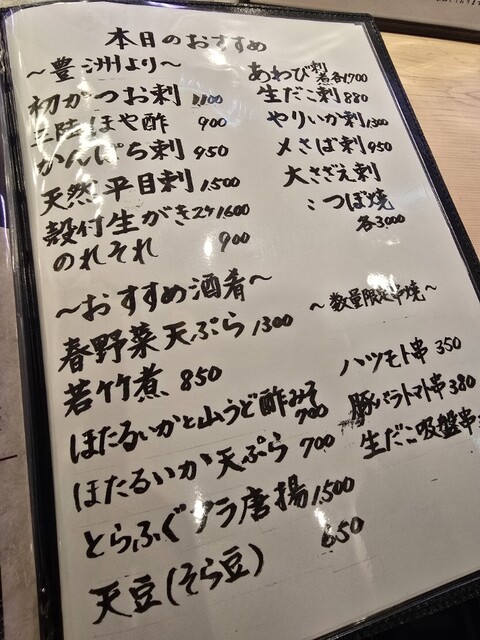 本日のおすすめ
～豊洲より～
初がつお刺 1100
三陸ほや酢 900
かんぱち刺 950
天然平目刺 1,500
殻付生がき2ケ1600
のれそれ 900
あわび刺
煮各1,700
生だこ刺 880
やりいか刺 1,300
〆さば刺 950
大さざえ刺
つぼ焼
各3,000
～おすすめ酒肴～
春野菜天ぷら 1300
若竹煮 850
ほたるいかと山うど酢みそ
700
ほたるいか天ぷら 700
とらふぐアラ唐揚 1,500
天豆(そら豆) 650
～数量限定串焼～
ハツモト串 350
豚バラトマト串 380
生だこ吸盤串